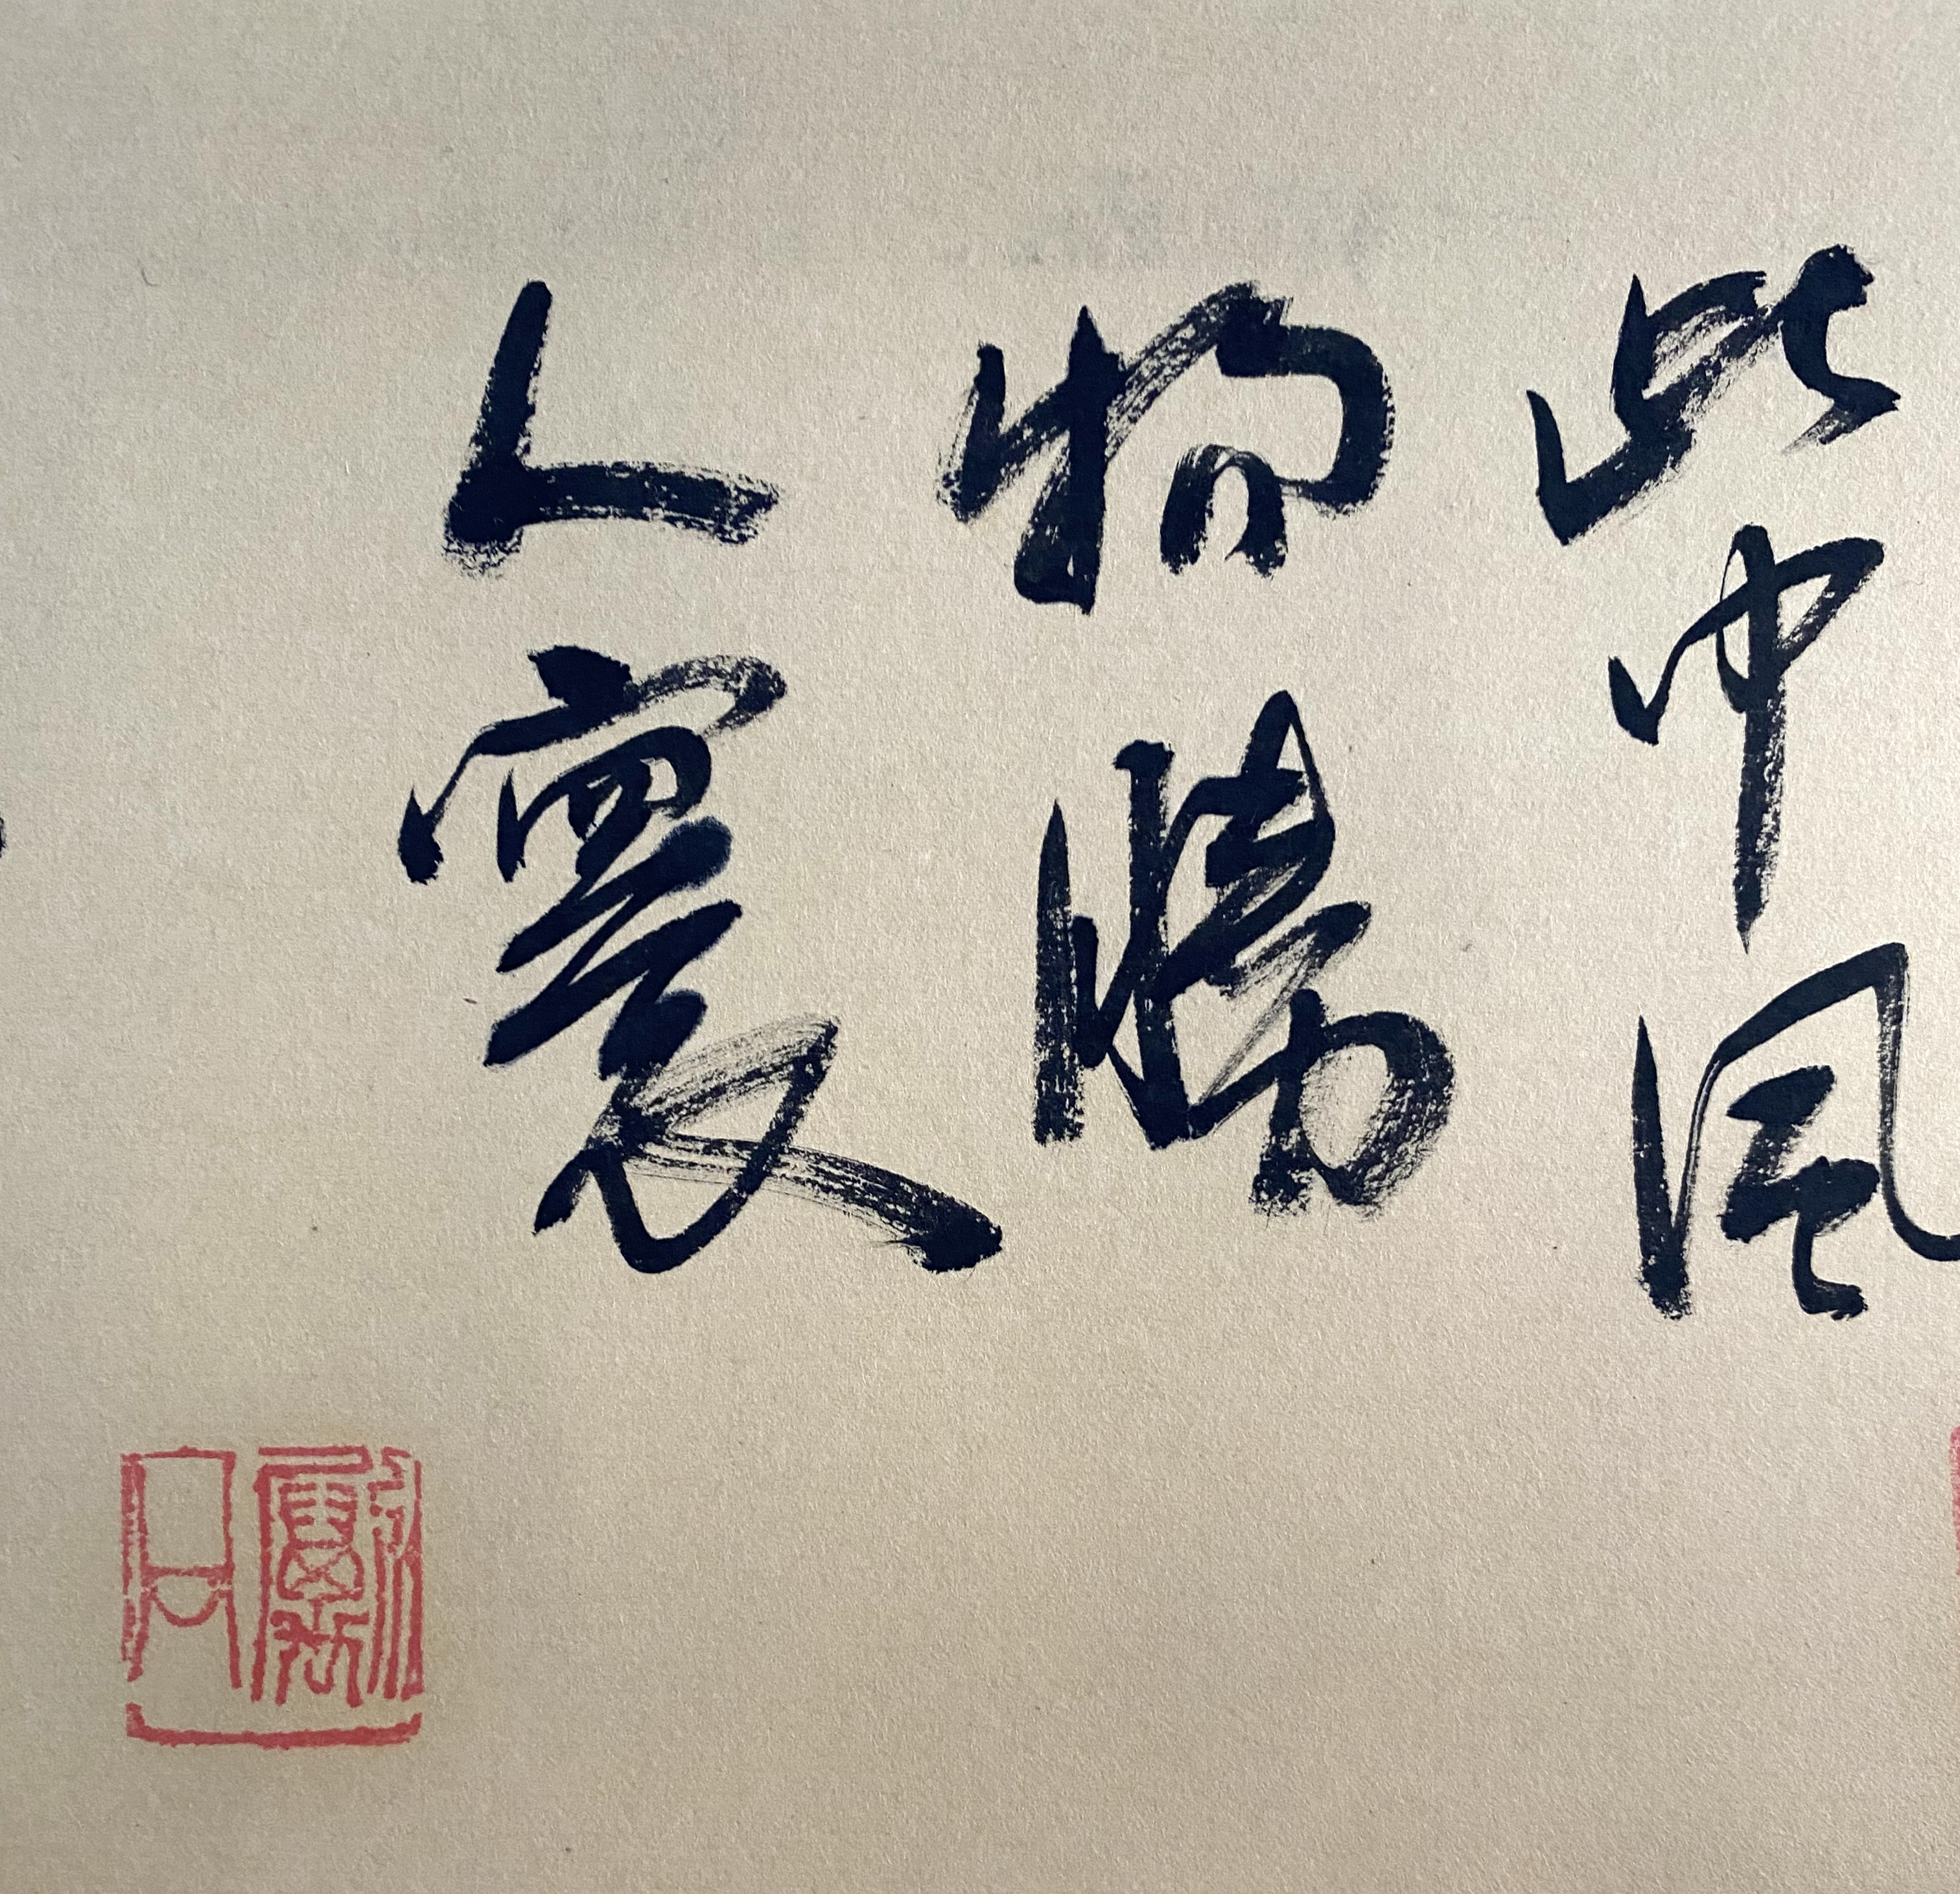 此中風
物勝
人寰